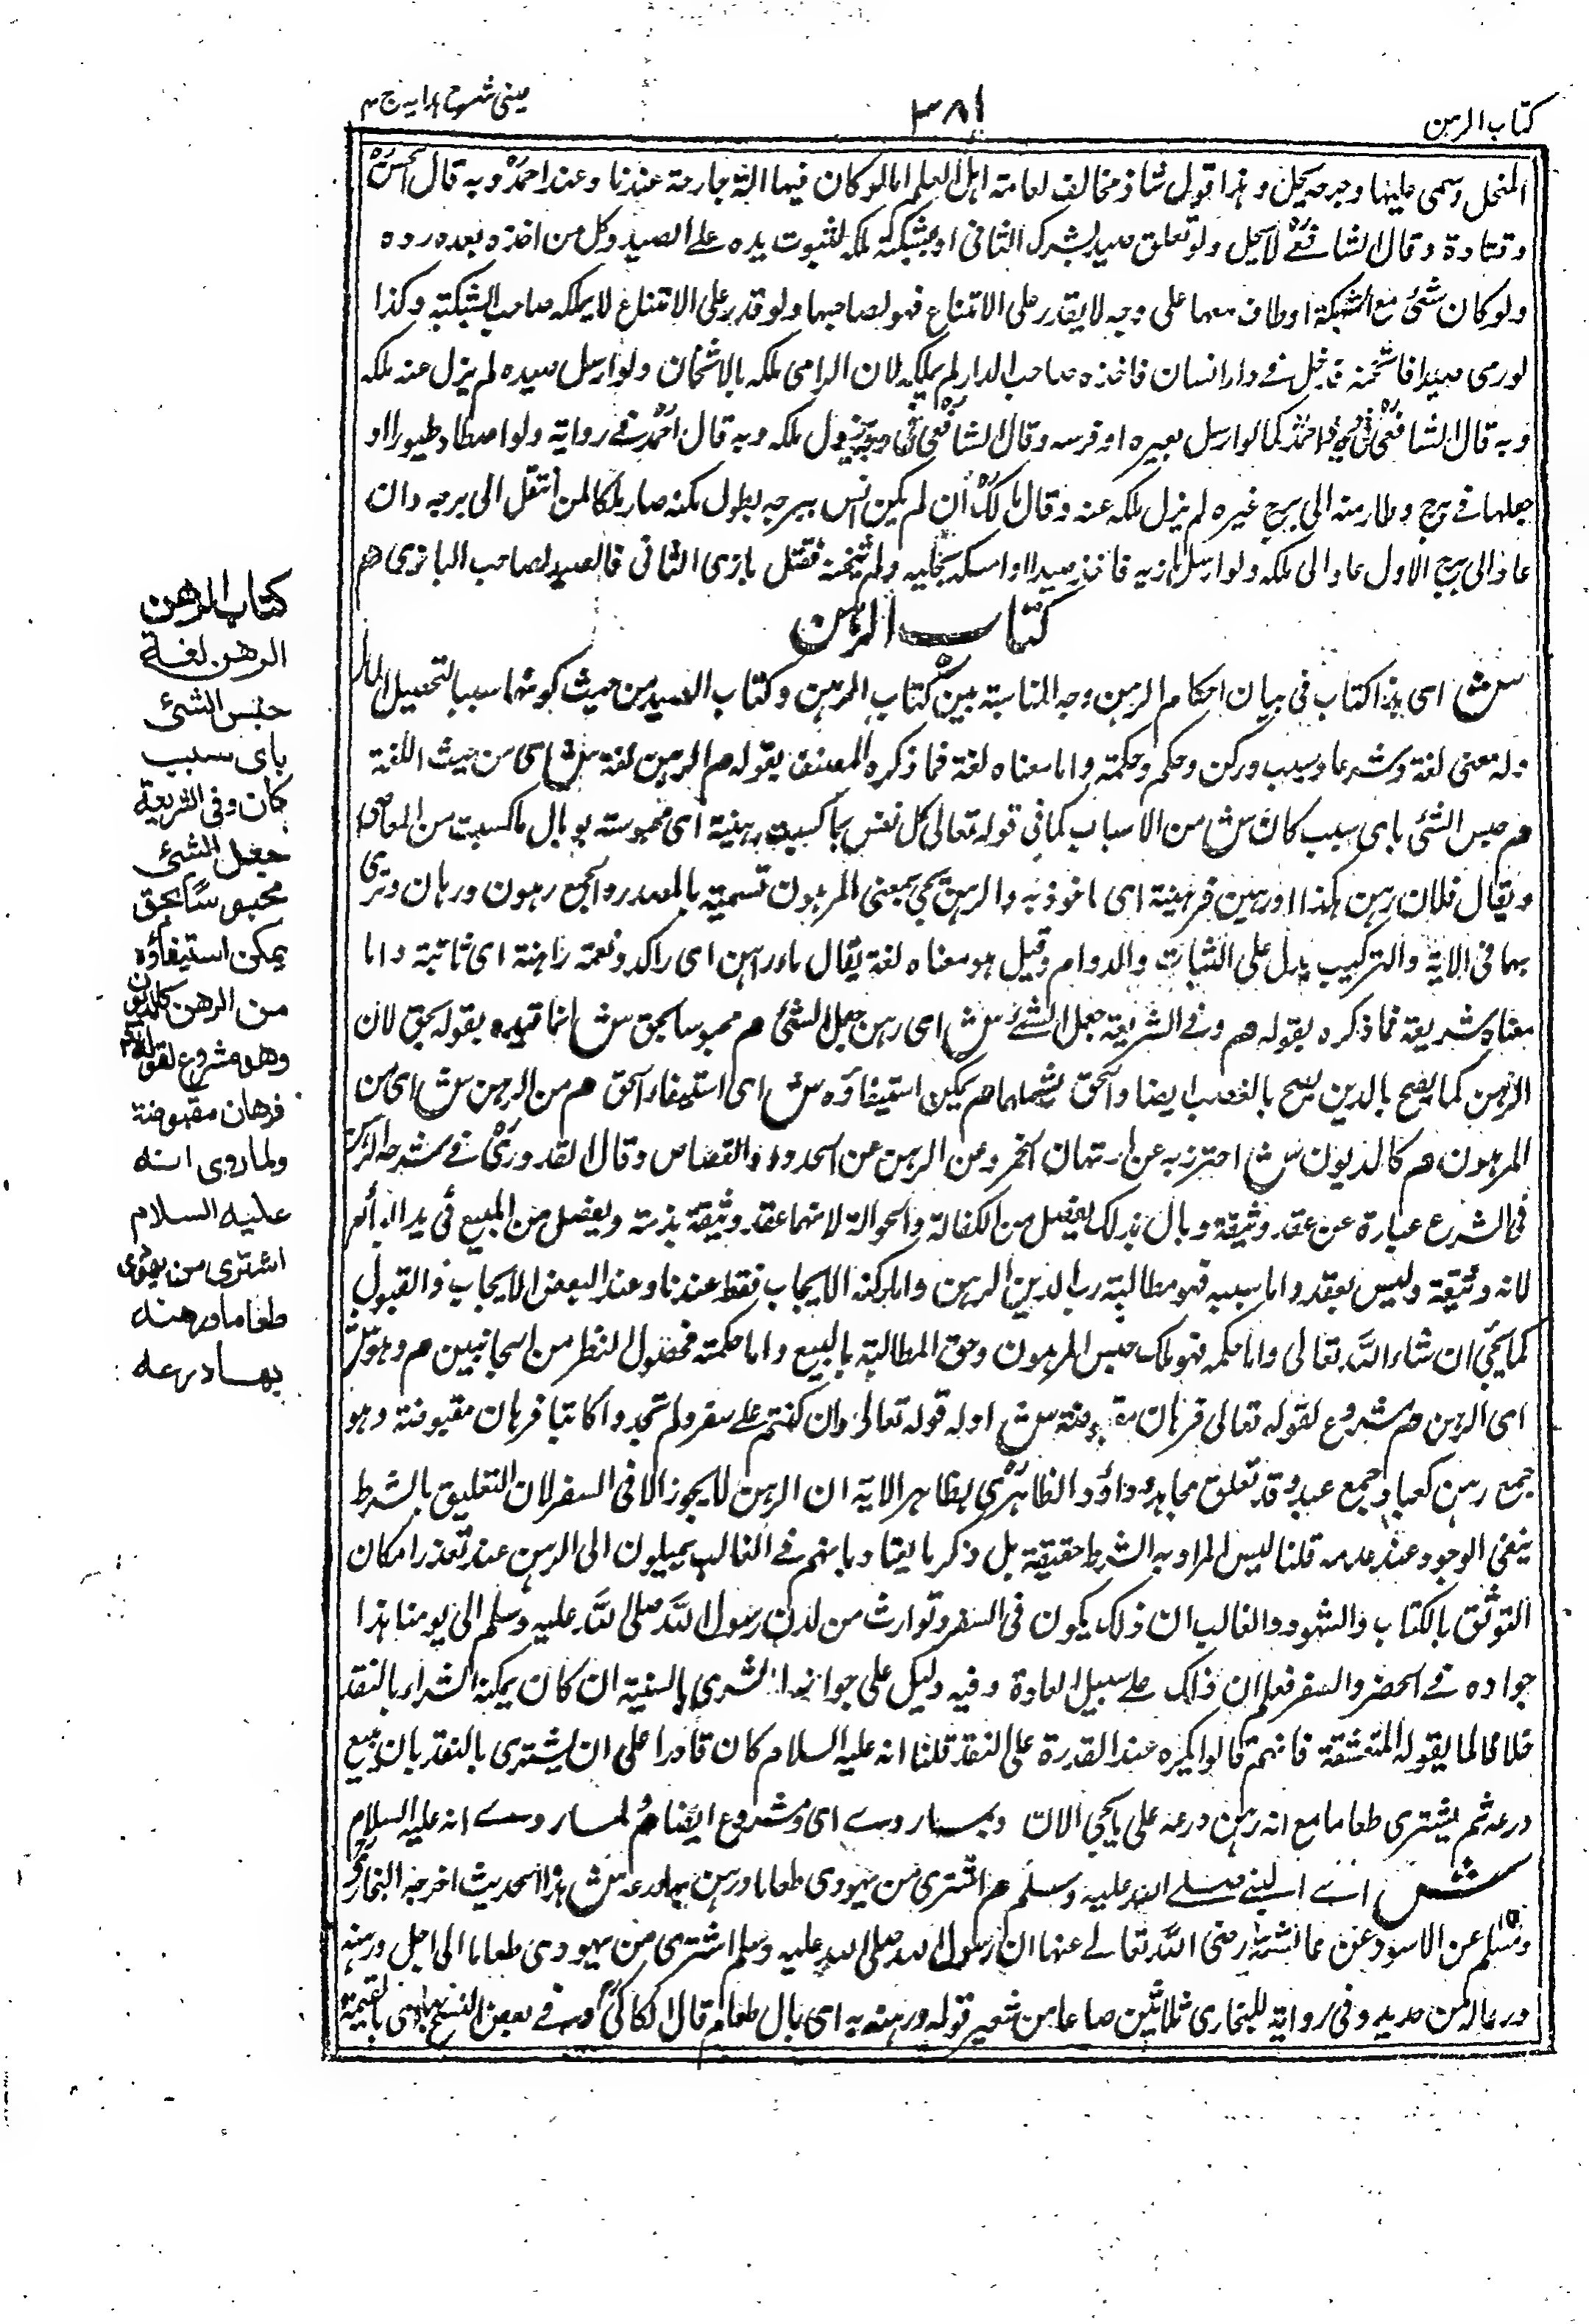 كتاب الرهن
٣٨١
عيني شرح هدايه ج ٤
المنجل وسمى عليها وجرحه يحل وهذا قول شاذ مخالف لعامة اهل العلم امالو كان فيها الة جارحة عندنا وعند احمدؒ وبه قال الحسنؒ
وقتادة وقال الشافعيؒ لا يحل ولو تعلق صيد بشرك الثاني او بشبكته ملكه لثبوت يده على الصيد وكل من اخذه بعده رده
ولو كان شئ مع الشبكة او طاف معها على وجه لا يقدر على الامتناع فهو لصاحبها ولو قدر على الامتناع لا يملكه صاحب الشبكة وكذا
لو رمى صيدا فاثخنه فدخل في دار انسان فاخذه صاحب الدار لم يملكه لان الرامى ملكه بالاثخان ولو ارسل صيده لم يزل عنه ملكه
وبه قال الشافعىؒ في وجه واحمدؒ كما لو ارسل بعيره او فرسه وقال الشافعىؒ في وجه يزول ملكه وبه قال احمدؒ في رواية ولو اصطاد طيورا او
جعلها في برج وطار منه الى برج غيره لم يزل ملكه عنه وقال مالكؒ ان لم يكن انس ببرجه بطول مكثه صار ملكا لمن انتقل الى برجه وان
عاد الى برج الاول عاد الى ملكه ولو ارسل بازيه فاخذ صيدا او امسكه بمخلبيه ولم يثخنه فقتل بازى الثانى فالصيد لصاحب البازى هم
كتاب الرهن
ش اى هذا كتاب فى بيان احكام الرهن وجه المناسبة بين كتاب الرهن وكتاب الصيد من حيث كونهما سببا لتحصيل المال
وله معنى لغة وشرعا وسبب وركن وحكم وحكمة واما معناه لغة فما ذكره المصنف بقوله هم الرهن لغة ش اى من حيث اللغة
هم حبس الشئ باى سبب كان ش من الاسباب كما فى قوله تعالى كل نفس بما كسبت رهينة اى محبوسة بوبال ما كسبت من المعاصى
ويقال فلان رهن بكذا او رهين فرهينة اى ماخوذ به والرهن يجئ بمعنى المرهون تسمية بالمصدر والجمع رهون ورهان وقرئ
بها فى الاية والتركيب يدل على الثبات والدوام وقيل هو معناه لغة يقال ماء راهن اى راكد ونعمة راهنة اى ثابتة واما
معناه شريعة فما ذكره بقوله هم وفى الشريعة جعل الشئ ش اى رهن جعل الشئ هم محبوسا بحق ش انما قيده بقوله بحق لان
الرهن كما يصح بالدين يصح بالغصب ايضا والحق يشملهما هم يمكن استيفاؤه ش اى استيفاء الحق هم من الرهن ش اى من
المرهون هم كالديون ش احترز به عن ارتهان الخمر وعن الرهن عن الحدود والقصاص وقال القدورىؒ فى شرحه الرهن
فى الشرع عبارة عن عقد وثيقة وبال بذلك يفصل من الكفالة والحوالة لانهما عقد وثيقة بذمة ويفصل من المبيع فى يد البائع
لانه وثيقة وليس بعقد واما سببه فهو مطالبة رب الدين الرهن واما ركنه الايجاب فقط عندنا وعند البعض الايجاب والقبول
كما يجئ ان شاء الله تعالى واما حكمه فهو ملك حبس المرهون وحق المطالبة بالبيع واما حكمته فحصول النظر من الجانبين هم وهو ش
اى الرهن هم مشروع لقوله تعالى فرهان مقبوضة ش اوله قوله تعالى وان كنتم على سفر ولم تجدوا كاتبا فرهان مقبوضة وهو
جمع رهن كعباد جمع عبد وقد تعلق مجاهد وداؤد الظاهرىؒ بظاهر الاية ان الرهن لا يجوز الا فى السفر لان التعليق بالشرط
ينفى الوجود عند عدمه قلنا ليس المراد به الشرط حقيقة بل ذكر ما يعتاد بانهم فى الغالب يميلون الى الرهن عند تعذر امكان
التوثق بالكتاب والشهود والغالب ان ذلك يكون فى السفر وتوارث من لدن رسول الله صلى الله عليه وسلم الى يومنا هذا
جوازه فى الحضر والسفر فعلم ان ذلك على سبيل العادة وفيه دليل على جواز الشرى بالنسية ان كان يمكنه الشراء بالنقد
خلافا لما يقوله المتقشفة فانهم قالوا يكره عند القدرة على النقد قلنا انه عليه السلام كان قادرا على ان يشترى بالنقد بان يبيع
درعه ثم يشترى طعاما مع انه رهن درعه على ما يجئ الان وبما روى اى ومشروع ايضا هم لما روى انه عليه السلام
ش اى النبى صلى الله عليه وسلم هم اشترى من يهودى طعاما ورهن بها درعه ش هذا الحديث اخرجه البخارىؒ
ومسلمؒ عن الاسود عن عائشة رضى الله تعالى عنها ان رسول الله صلى الله عليه وسلم اشترى من يهودى طعاما الى اجل ورهنه
درعا له من حديد وفى رواية للبخارى ثلاثين صاعا من شعير قوله ورهنه به اى بال طعام قال الكاكىؒ وفى بعض النسخ بها اى بالقيمة
كتاب الرهن
الرهن لغة
حبس الشئ
باى سبب
كان وفى الشريعة
جعل الشئ
محبوسًا بحق
يمكن استيفاؤه
من الرهن كالديون
وهو مشروع لقوله تعالى
فرهان مقبوضة
ولما روى انه
عليه السلام
اشترى من يهودى
طعاما ورهنه
بها درعه